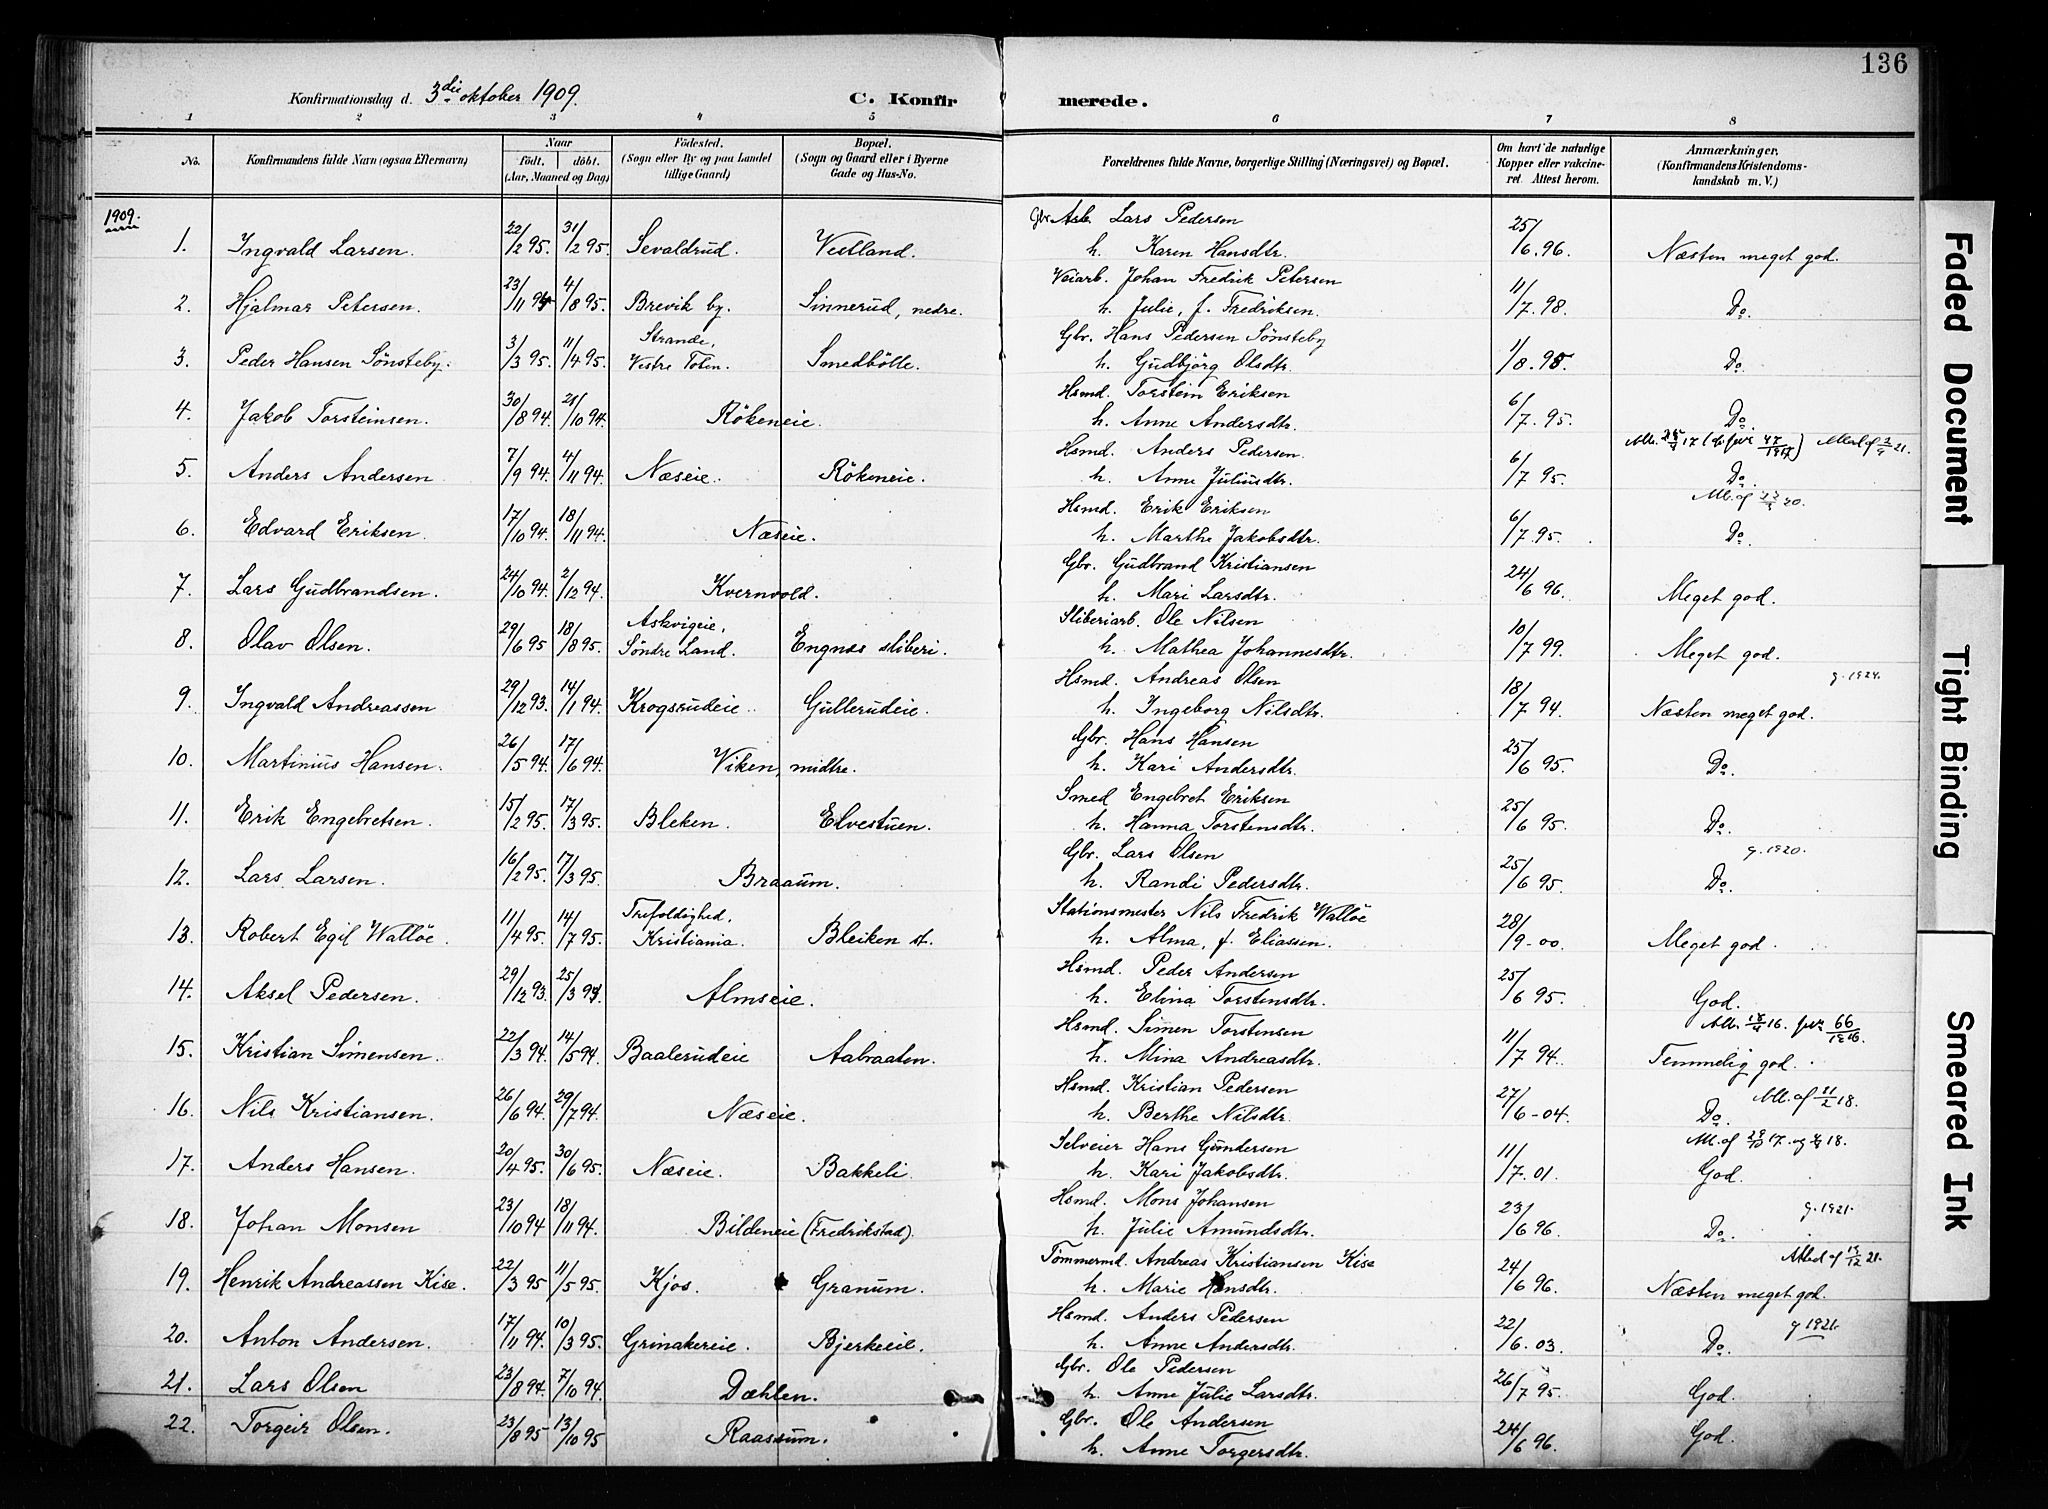 136
Konfirmationsdag d. 3die oktober 1909.
C. Konfirmerede.
1 2 3 4 5 6 7 8
No.
Konfirmandens fulde Navn (ogsaa Efternavn)
Naar
födt. döbt.
(Aar, Maaned og Dag)
Födested.
(Sogn eller By og paa Landet tillige Gaard)
Bopæl.
(Sogn og Gaard eller i Byerne Gade og Hus-No.
Forældrenes fulde Navne, borgerlige Stilling (Næringsvei) og Bopæl.
Om havt de naturlige Kopper eller vakcineret. Attest herom.
Anmærkninger,
(Konfirmandens Kristendomskundskab m. V.)
1909.
1. Ingvald Larsen. 22/12 95. 31/12 95. Sevaldrud. Vestland. Gbr. Arb. Lars Pedersen
h. Karen Hansdtr. 25/6. 96. Næsten meget god.
2. Hjalmar Petersen. 23/11 94 4/8 95. Brevik by. Sinnerud, nedre. Veiarb. Johan Fredrik Petersen
h. Julie, f. Fredriksen. 11/7. 98. Do.
3. Peder Hansen Sønsteby. 3/3 95. 11/4 95. Strande, Vestre Toten. Smedbölle. Gbr. Hans Pedersen Sønsteby
h. Gudbjörg Olsdtr. 1/8. 95. Do.
4. Jakob Torsteinsen. 30/8 94. 21/10 94. Rökeneie. Hsmd. Torstein Eriksen
h. Anne Andersdtr. 6/7. 95. Do.
5. Anders Andersen 7/9 94. 4/11 94. Næseie. Rökeneie. Hsmd. Anders Pedersen.
h. Anne Juliusdtr. 6/7 95. Do.
6. Edvard Eriksen. 17/10 94. 18/11 94. Næseie. Hsmd. Erik Eriksen
h. Marthe Jakobsdtr. 6/7. 95. Do.
7. Lars Gudbrandsen. 24/10 94. 2/12 94. Kvernvold. Gbr. Gudbrand Kristiansen
h. Mari Larsdtr. 24/6 96. Meget god.
8. Olav Olsen. 29/6 95 18/8 95. Askvigeie, Söndre Land. Engnæs sliberi. Sliberiarb. Ole Nilsen
h. Mathea Johannesdtr. 10/7 99. Meget god.
g. 1924.
9. Ingvald Andreassen 29/12 93. 14/1 94. Krogsrudeie. Gullerudeie. Hsmd. Andreas Olsen
h. Ingeborg Nilsdtr. 18/7 94. Næsten meget god.
10. Martinius Hansen. 26/5 94. 17/6 94. Viken, midtre. Gbr. Hans Hansen
h. Kari Andersdtr. 25/6 95. Do.
11. Erik Engebretsen. 15/2 95. 17/3 95. Bleken. Elvestuen. Smed Engebret Eriksen
h. Hanna Torstensdtr. 25/6 95. Do.
g. 1920.
12. Lars Larsen. 16/2 95. 17/3 95. Braaum. Gbr. Lars Olsen
h. Randi Pedersdtr. 25/6 95. Do.
13. Robert Egil Wallöe. 11/4 95. 14/7 95. Trefoldighed, Kristiania. Bleiken st. Stationsmester Nils Fredrik Wallöe
h. Alma, f. Eliassen. 28/9-00. Meget god.
14. Aksel Pedersen. 29/12 93. 25/3 94. Almseie. Hsmd. Peder Andersen
h. Elina Torstensdtr. 25/6 95. God.
15. Kristian Simensen. 22/3 94. 14/5 94. Baalerudeie Aabraaten. Hsmd. Simen Torstensen
h. Mina Andreasdtr. 11/7 94. Temmelig god.
16. Nils Kristiansen. 26/6 94. 29/7 94. Næseie. Hsmd. Kristian Pedersen
h. Berthe Nilsdtr. 27/6-04. Do.
17. Anders Hansen. 20/4 95. 30/6 95. Næseie. Bakkeli. Selveier Hans Gundersen
h. Kari Jakobsdtr. 11/7. 01. God.
g. 1921.
18. Johan Monsen 23/10 94 18/11 94. Bildeneie (Fredrikstad). Hsmd. Mons Johansen
h. Julie Amundsdtr. 23/6 96. Do.
19. Henrik Andreassen Kise. 22/3 95 11/5 95. Kjos. Granum. Tømmermd. Andreas Kristiansen Kise
h. Marie Hansdtr. 24/6 96. Næsten meget god.
g 1921.
20. Anton Andersen. 17/11 94. 10/3 95. Grinakereie. Bjerkeeie. Hsmd. Anders Pedersen
h. Anne Andersdtr. 22/6. 03. Do.
21. Lars Olsen 23/8 94. 7/10 94. Dæhlen. Gbr. Ole Pedersen
h. Anne Julie Larsdtr. 26/7 95. God.
22. Torgeir Olsen. 23/8 95 13/10 95 Raassum. Gbr. Ole Andersen
h. Anne Torgersdtr. 24/6 96. God.
Faded Document
Tight Binding
Smeared Ink